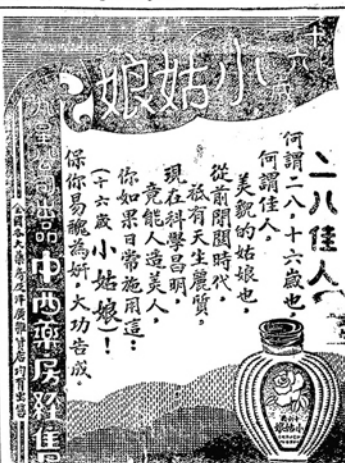 十六歲
小姑娘
二八佳人
何謂二八,十六歲也,
何謂佳人,
美貌的姑娘也,
從前閉關時代,
祇有天生麗質,
現在科學昌明,
竟能人造美人,
你如果日常施用這:
(十六歲小姑娘)!
保你易醜為妍,大功告成。
公司出品
中西藥房經售
全國各大藥房及洋廣雜貨店均有出售
小姑娘